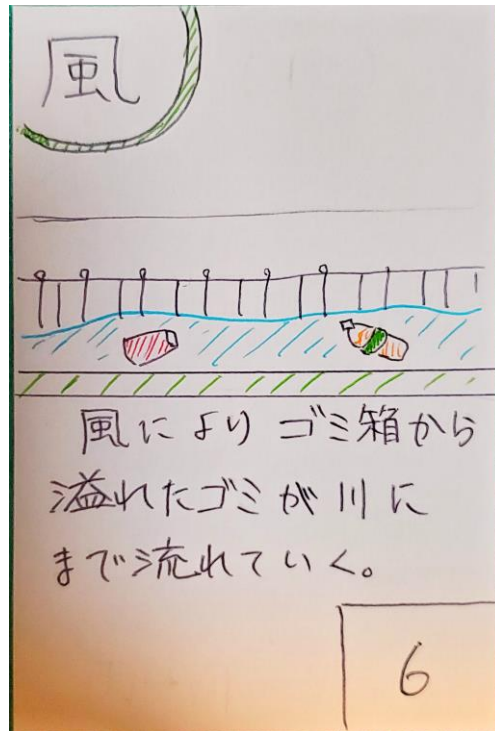 風
風によりゴミ箱から
溢れたゴミが川に
まで流れていく。
6